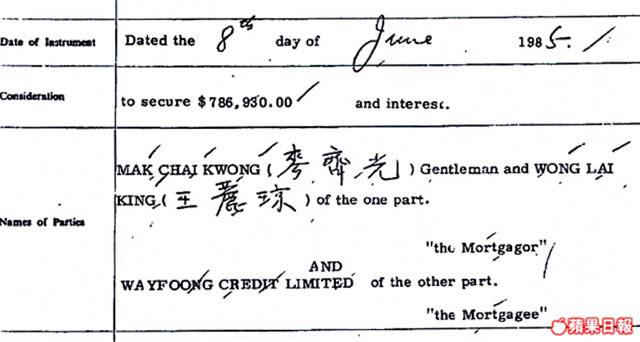 Date of Instrument
Dated the 8th day of June 1985.
Consideration
to secure $786,930.00 and interest.
Names of Parties
MAK CHAI KWONG (麥齊光) Gentleman and WONG LAI
KING (王麗琼) of the one part.
"the Mortgagor"
AND
WAYFOONG CREDIT LIMITED of the other part.
"the Mortgagee"
蘋果日報